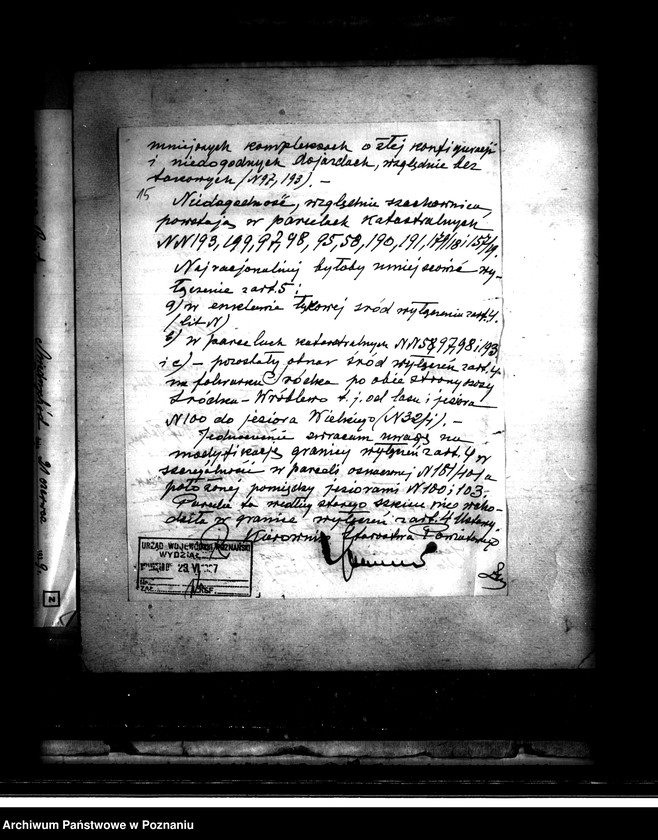 mniejszych kompleksach o złej konfiguracji
i niedogodnych dojazdach, względnie bez
takowych (N 97, 193). —
15
Niedogodność, względnie szachownica,
powstaje w parcelach katastralnych
NN 193, 199, 97, 98, 95, 58, 190, 191, 179/18 i 157/19.
Najracjonalniej byłoby umiejscowić wy-
łączenie z art. 5:
a) w enklawie łąkowej śród wyłączenia z art. 4.
/lit N)
b) w parcelach katastralnych NN 58, 97, 98 i 193
i c) – pozostały obszar śród wyłączeń z art. 4
na folwarku Śródka po obie strony szosy
Śródka – Wróblewo t. j. od lasu i jeziora
N 100 do jeziora Wielkiego (N 32/i). —
Jednocześnie zwracam uwagę na
modyfikację granicy wyłączeń z art. 4 w
szczególności w parceli oznaczonej N 161/40 a
położonej pomiędzy jeziorami N 100 i 103.
Parcela ta według starego szkicu nie wcho-
dziła w granice wyłączeń z art. 4 Ustawy.
Kierownik Starostwa Powiatowego
URZĄD WOJEWÓDZKI POZNAŃSKI
WYDZIAŁ
23 VI
ZAŁ. REF.
2
Archiwum Państwowe w Poznaniu